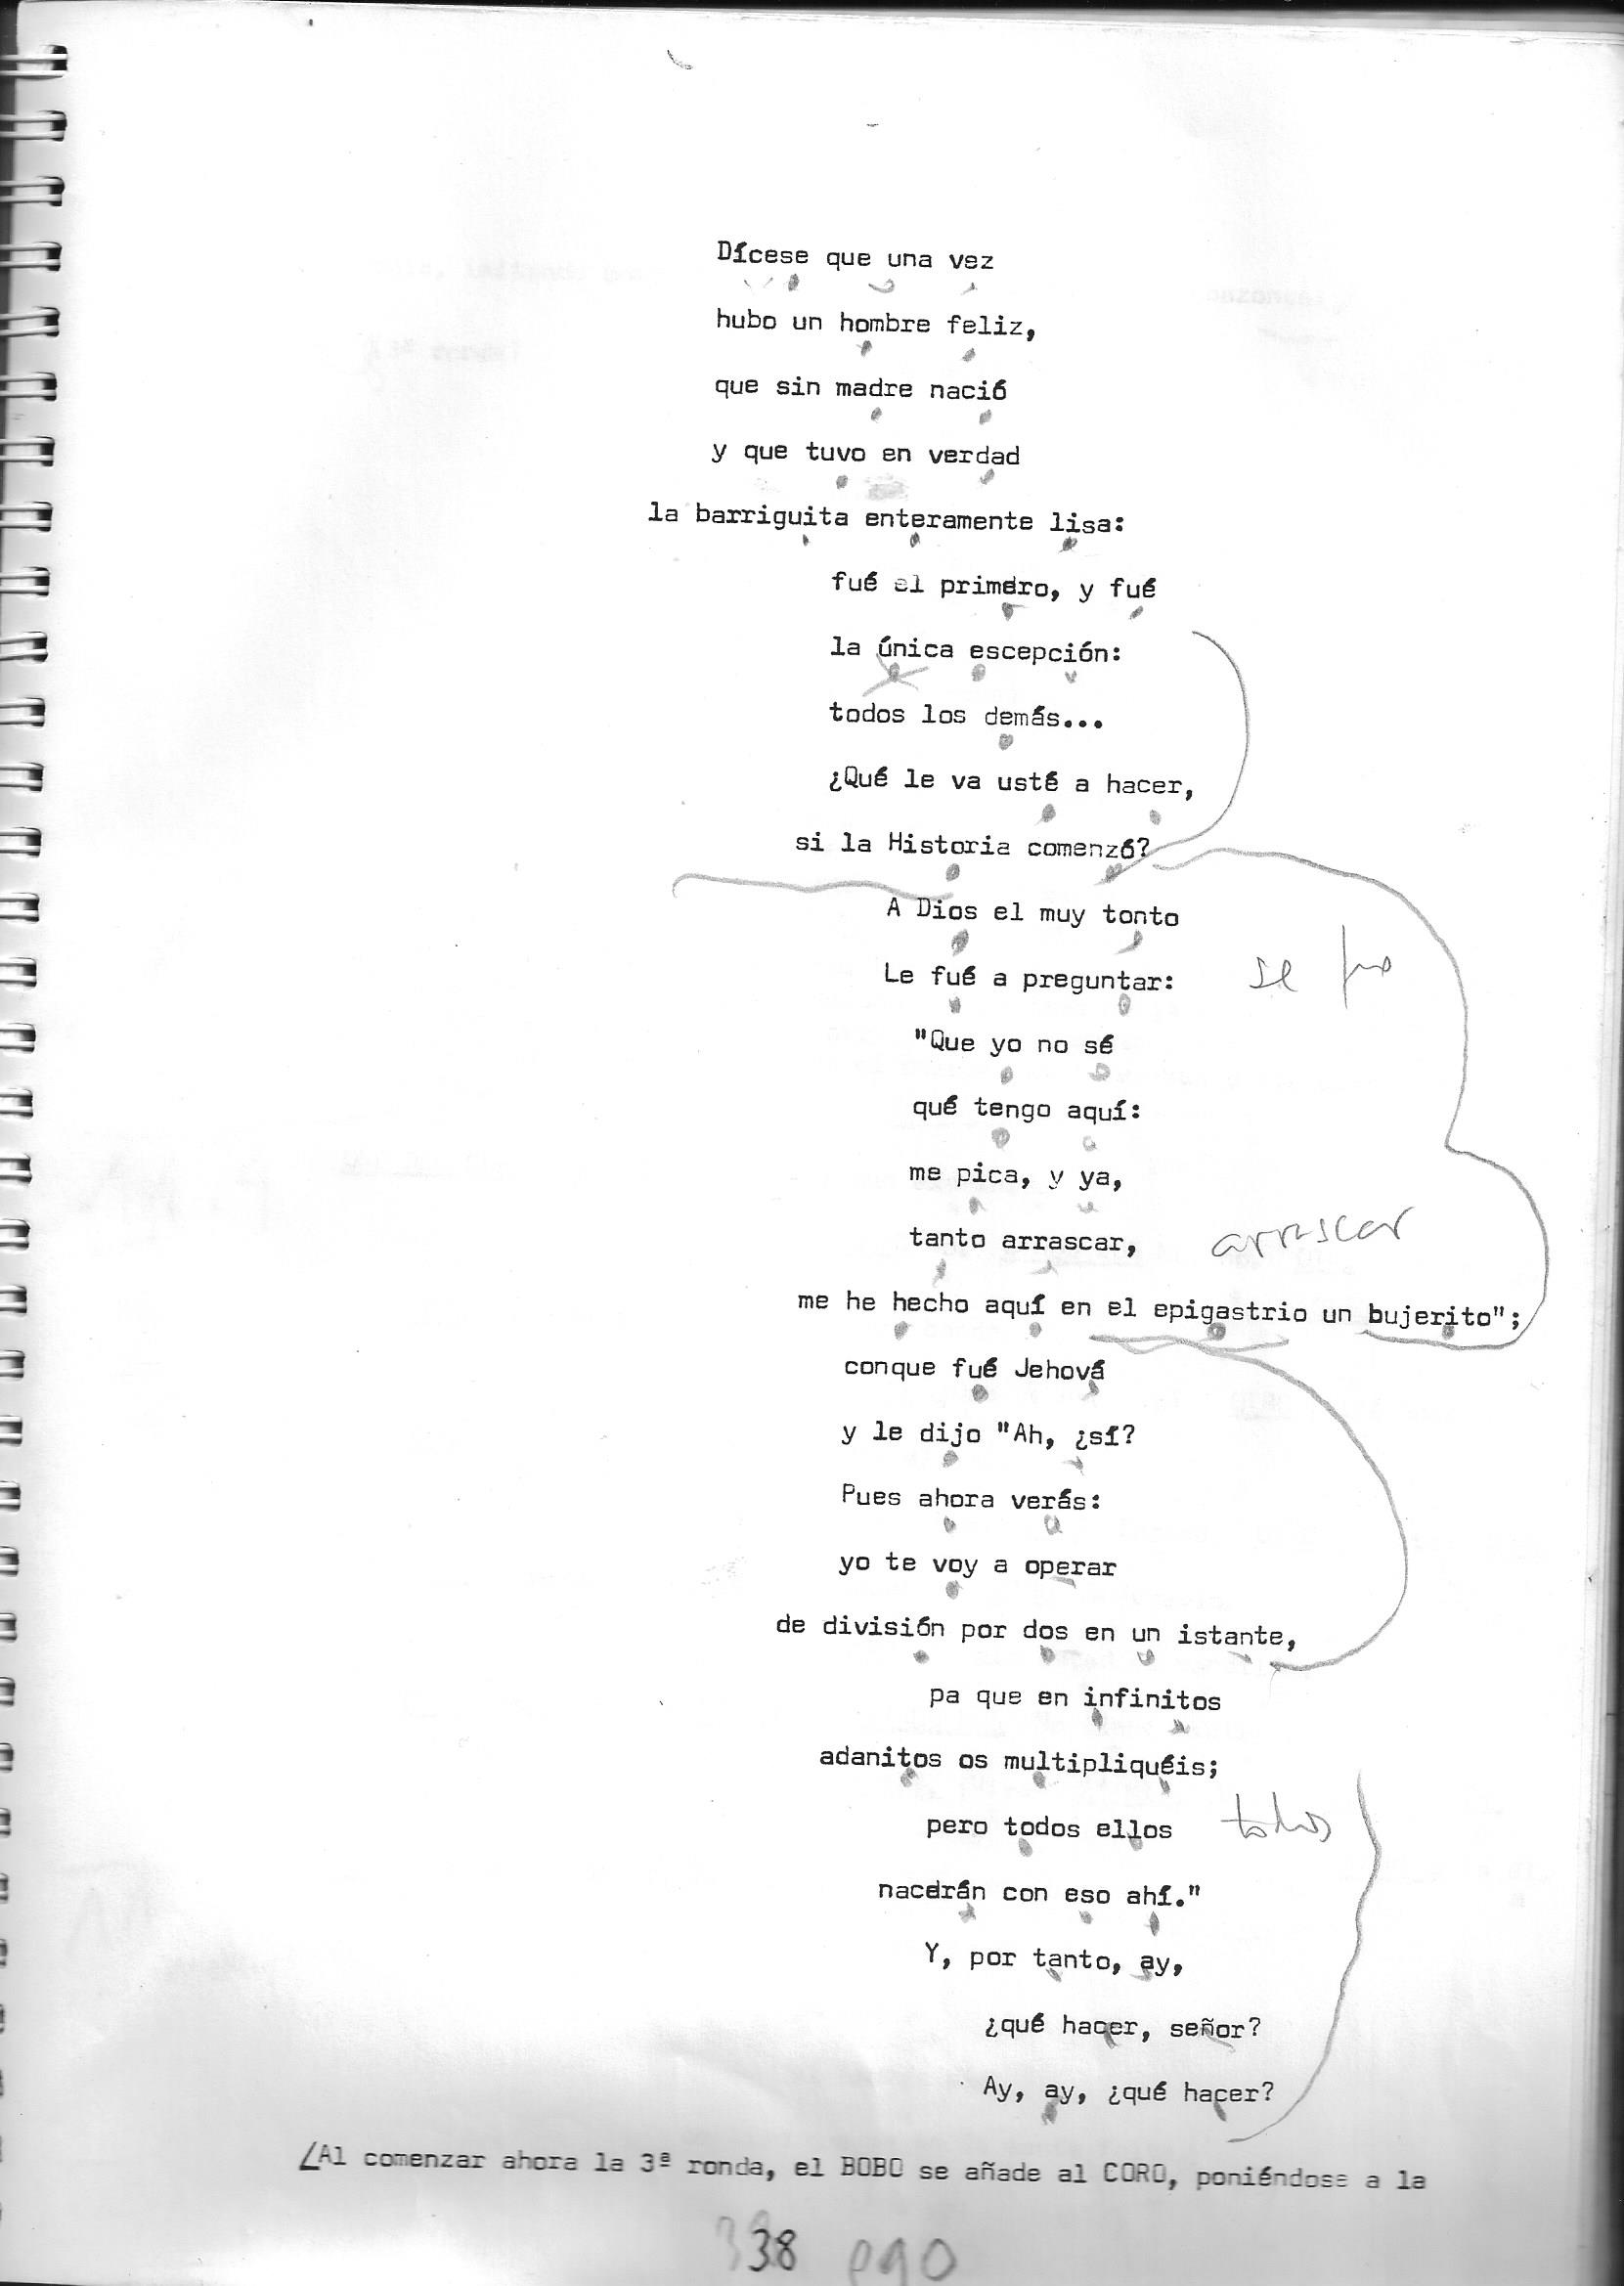 Dícese que una vez
hubo un hombre feliz,
que sin madre nació
y que tuvo en verdad
la barriguita enteramente lisa:
fué el primero, y fué
la única escepción:
todos los demás...
¿Qué le va usté a hacer,
si la Historia comenzó?
A Dios el muy tonto
Le fué a preguntar: se
"Que yo no sé
qué tengo aquí:
me pica, y ya,
tanto arrascar, arrascar
me he hecho aquí en el epigastrio un bujerito";
conque fué Jehová
y le dijo "Ah, ¿sí?
Pues ahora verás:
yo te voy a operar
de división por dos en un istante,
pa que en infinitos
adanitos os multipliquéis;
pero todos ellos todos
nacerán con eso ahí."
Y, por tanto, ay,
¿qué hacer, señor?
Ay, ay, ¿qué hacer?
/Al comenzar ahora la 3ª ronda, el BOBO se añade al CORO, poniéndose a la
38 ego